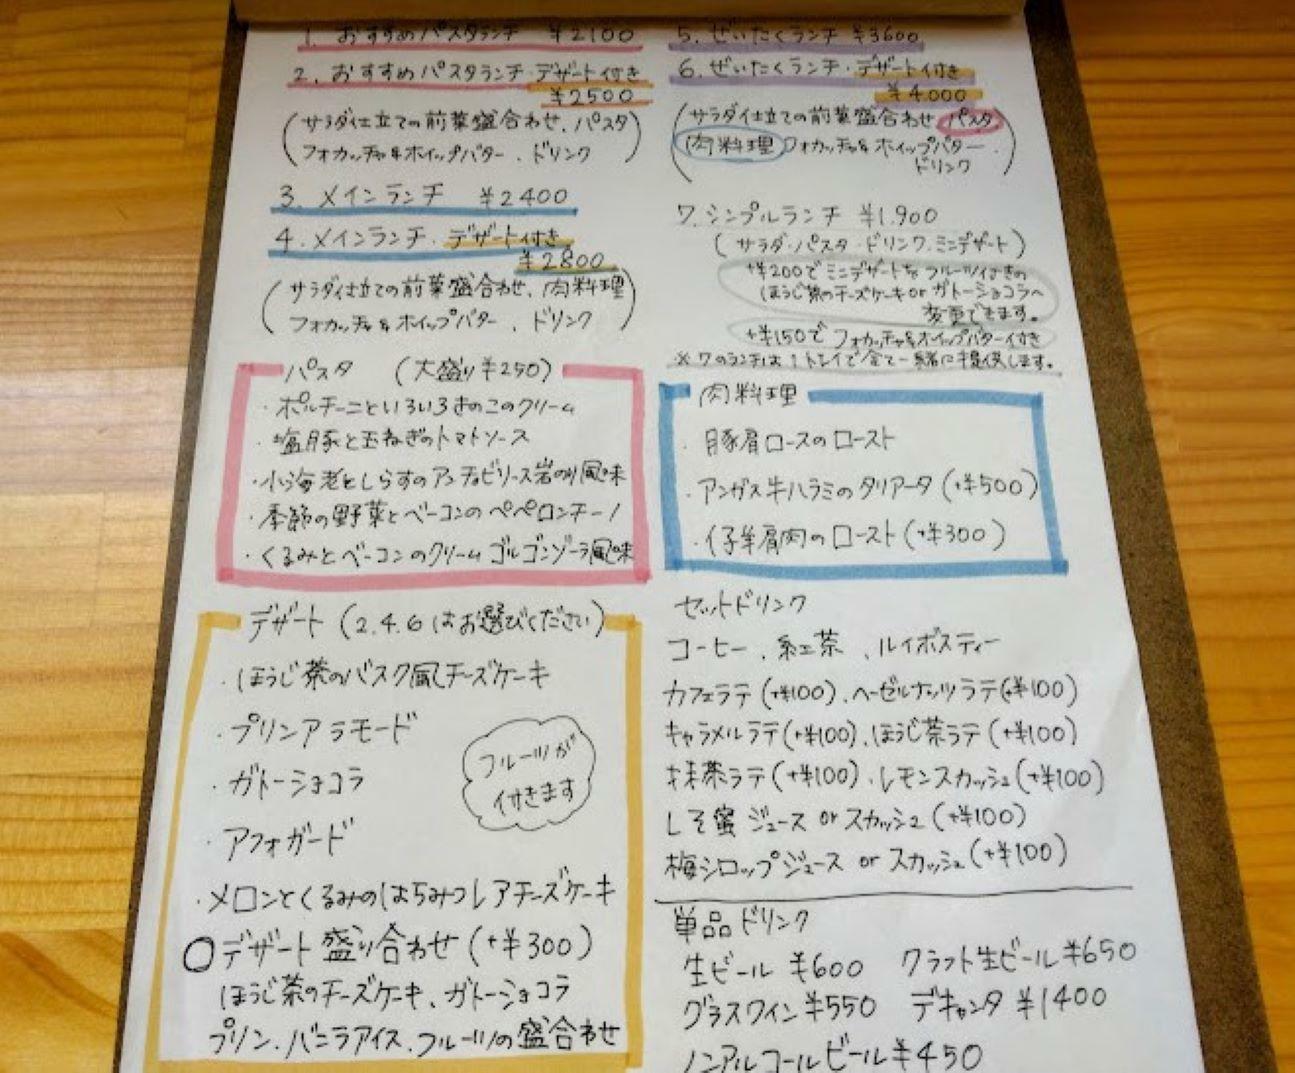 1. おすすめパスタランチ ¥2100
2. おすすめパスタランチ・デザート付き
¥2500
(サラダ仕立ての前菜盛合わせ、パスタ
フォカッチャ&ホイップバター、ドリンク)
3. メインランチ ¥2400
4. メインランチ・デザート付き
¥2800
(サラダ仕立ての前菜盛合わせ、肉料理
フォカッチャ&ホイップバター、ドリンク)
パスタ (大盛り¥250)
・ポルチーニといろいろきのこのクリーム
・塩豚と玉ねぎのトマトソース
・小海老としらすのアンチョビソース岩のり風味
・季節の野菜とベーコンのペペロンチーノ
・くるみとベーコンのクリーム ゴルゴンゾーラ風味
デザート (2.4.6はお選びください)
・ほうじ茶のバスク風チーズケーキ
・プリンアラモード
・ガトーショコラ
・アフォガード
フルーツが
付きます
・メロンとくるみのはちみつレアチーズケーキ
○デザート盛り合わせ (+¥300)
ほうじ茶のチーズケーキ、ガトーショコラ
プリン、バニラアイス、フルーツの盛合わせ
5. ぜいたくランチ ¥3600
6. ぜいたくランチ・デザート付き
¥4.000
(サラダ仕立ての前菜盛合わせ パスタ
肉料理 フォカッチャ&ホイップバター、
ドリンク)
7. シンプルランチ ¥1.900
(サラダ・パスタ・ドリンク・ミニデザート)
+¥200でミニデザートを フルーツ付きの
ほうじ茶のチーズケーキor ガトーショコラへ
変更できます。
+¥150で フォカッチャ&ホイップバター付き
※ 7のランチは1トレイで全て一緒に提供します。
肉料理
・豚肩ロースのロースト
・アンガス牛ハラミのタリアータ (+¥500)
・仔羊肩肉のロースト (+¥300)
セットドリンク
コーヒー、紅茶、ルイボスティー
カフェラテ (+¥100)、ヘーゼルナッツラテ(+¥100)
キャラメルラテ(+¥100)、ほうじ茶ラテ (+¥100)
抹茶ラテ (+¥100)、レモンスカッシュ(+¥100)
しそ蜜ジュース or スカッシュ (+¥100)
梅シロップジュース or スカッシュ(+¥100)
単品ドリンク
生ビール ¥600 クラフト生ビール¥650
グラスワイン¥550 デキャンタ ¥1400
ノンアルコールビール¥450